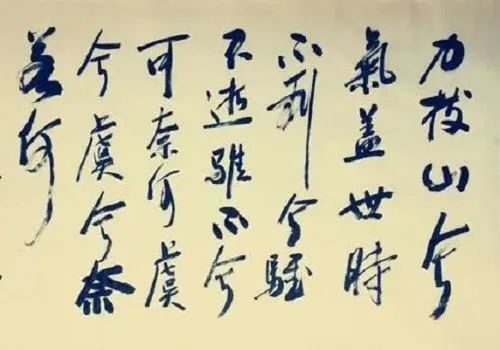 力拔山兮
氣蓋世時
不利兮騅
不逝騅不兮
可奈何虞
兮虞兮奈
若何